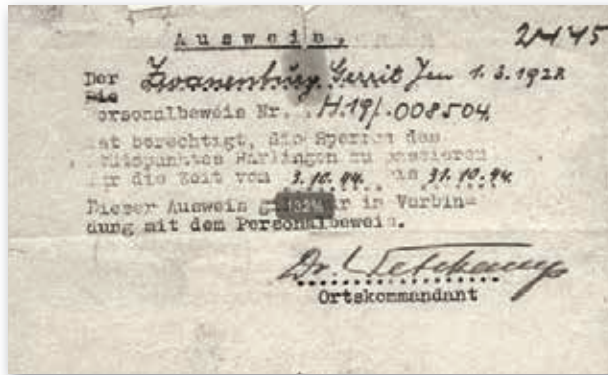 Ausweis.
2445
Der Zwanenburg Gerrit Jan 1.3.1928
Die
Personalbeweis Nr. H.19/.008504.
ist berechtigt, die Sperren des
Stützpunktes Harlingen zu passieren
für die Zeit vom 3.10.44. bis 31.10.44.
Dieser Ausweis gilt nur in Verbin=
dung mit dem Personalbeweis.
Dr.
Ortskommandant